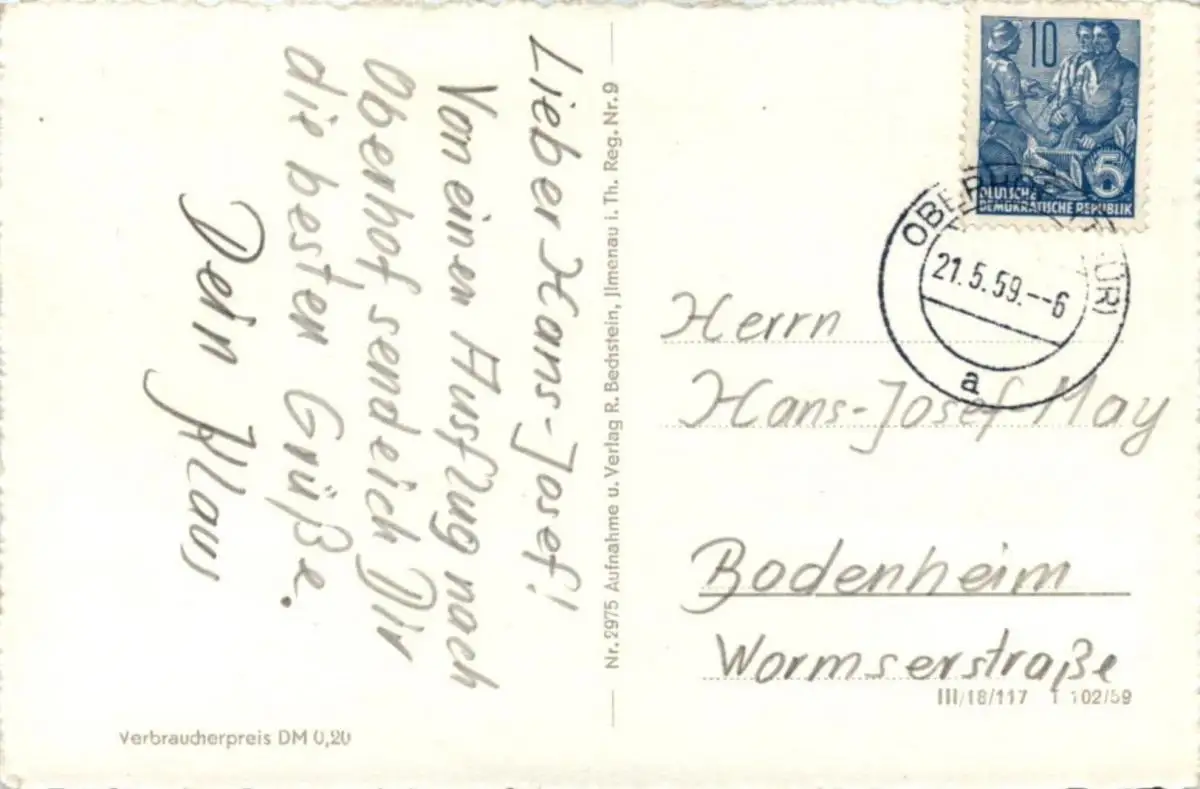 Lieber Hans-Josef!
Von einen Ausflug nach
Oberhof sende ich Dir
die besten Grüße.
Dein Klaus
Verbraucherpreis DM 0,20
Nr. 2975 Aufnahme u. Verlag R. Bechstein, Jlmenau i. Th. Reg. Nr. 9
10
5
DEUTSCHE
DEMOKRATISCHE REPUBLIK
OBERHOF (THÜR)
21.5.59.--6
a
Herrn
Hans-Josef May
Bodenheim
Wormserstraße
III/18/117 T 102/59